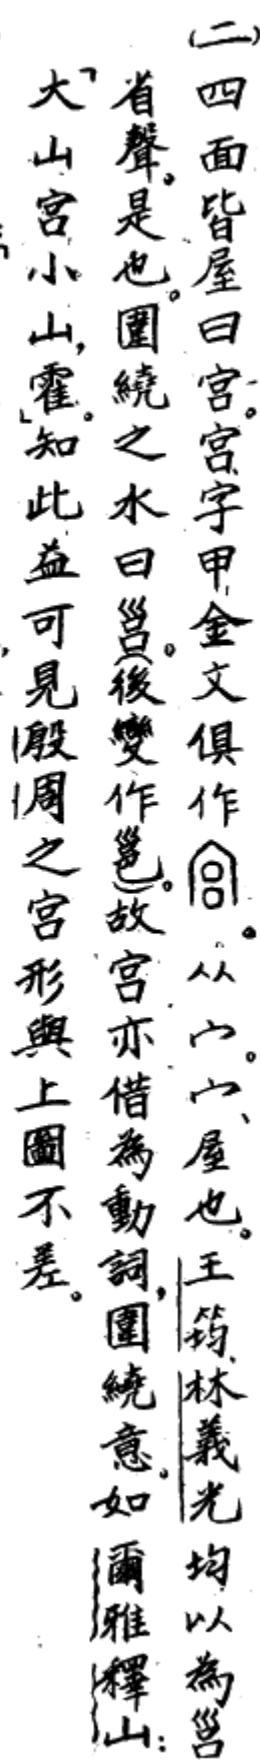 (二)四面皆屋曰宮。宮字甲、金文俱作。从宀。宀、屋也。王筠、林義光均以為𠱠
省聲。是也。圍繞之水曰𠱠。(後變作邕)。故宮亦借為動詞,圍繞意。如爾雅釋山:
「大山宮小山,霍。」知此益可見殷周之宮形與上圖不差。